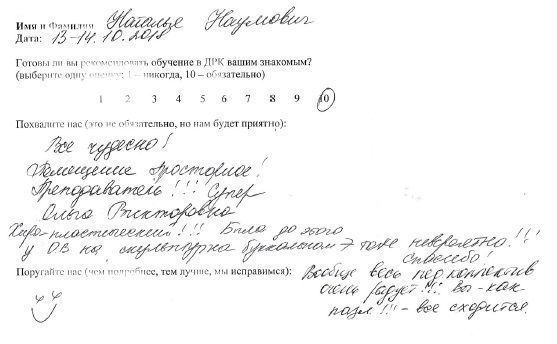 Имя и Фамилия Наталья Наумович
Дата: 13-14.10.2018
Готовы ли вы рекомендовать обучение в ДРК вашим знакомым?
(выберите одну оценку: 1 – никогда, 10 – обязательно)
1 2 3 4 5 6 7 8 9 10
Похвалите нас (это не обязательно, но нам будет приятно):
Все чудесно!
Помещение просторное!
Преподаватель!!! Супер
Ольга Викторовна
Хиропластический!!!! Была до этого
у О.В на скульптурка буккальном тоже невероятно!!!
Спасибо!
Поругайте нас (чем подробнее, тем лучше, мы исправимся):
Вообще весь пед коллектив
очень радует!!! Вы - как
пазл!!! - все сходится.